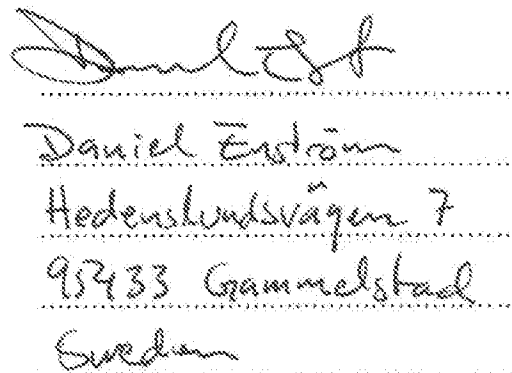 Daniel Enström
Hedenslundsvägen 7
95433 Gammelstad
Sweden